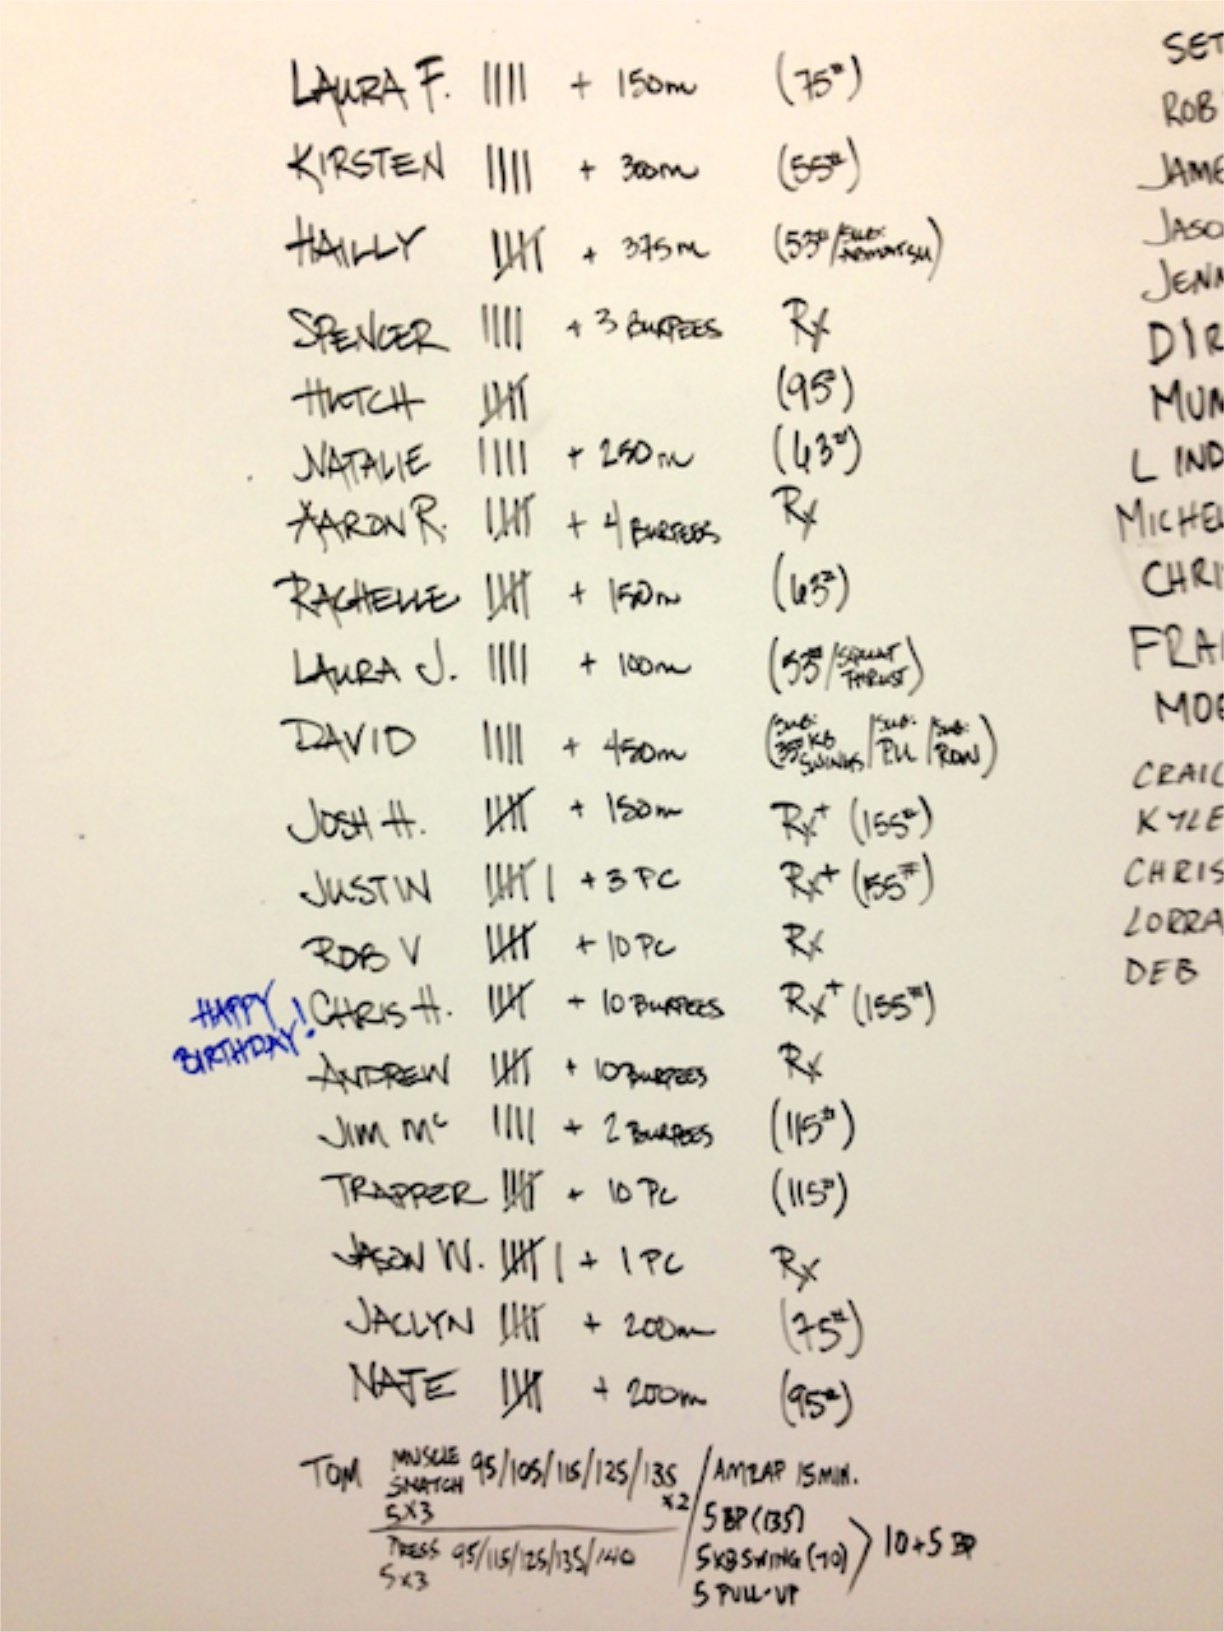 LAURA F. |||| + 150m (75#)
KIRSTEN |||| + 300m (55#)
HAILLY 卌 + 375m (53#/SUB: ABMATSU)
SPENCER |||| + 3 BURPEES Rx
HUTCH 卌 (95#)
NATALIE |||| + 250m (63#)
AARON R. 卌 + 4 BURPEES Rx
RACHELLE 卌 + 150m (63#)
LAURA J. |||| + 100m (53#/SQUAT THRUST)
DAVID |||| + 450m (SUB: 35# KB SWINGS/SUB: P.U./SUB: ROW)
JOSH H. 卌 + 150m Rx+ (155#)
JUSTIN 卌 | + 3 PC Rx+ (155#)
ROB V 卌 + 10 PC Rx
HAPPY BIRTHDAY! CHRIS H. 卌 + 10 BURPEES Rx+ (155#)
ANDREW 卌 + 10 BURPEES Rx
JIM Mc |||| + 2 BURPEES (115#)
TRAPPER 卌 + 10 PC (115#)
JASON W. 卌 | + 1 PC Rx
JACLYN 卌 + 200m (75#)
NATE 卌 + 200m (95#)
TOM MUSCLE SNATCH 5x3 95/105/115/125/135 x2
PRESS 5x3 95/115/125/135/140
AMRAP 15 MIN.
5 BP (135)
5 KB SWING (70) > 10+5 BP
5 PULL-UP
SET
ROB
JAME
JASO
JENN
DIR
MUN
L IND
MICHEL
CHRI
FRA
MOE
CRAIG
KYLE
CHRIS
LORRA
DEB